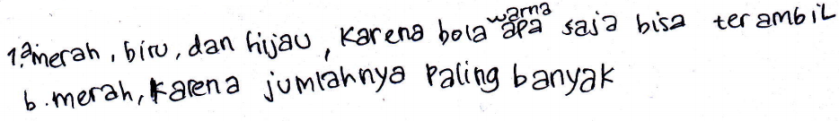 1.a merah, biru, dan hijau, karena bola warna apa saja bisa terambil
b. merah, karena jumlahnya paling banyak